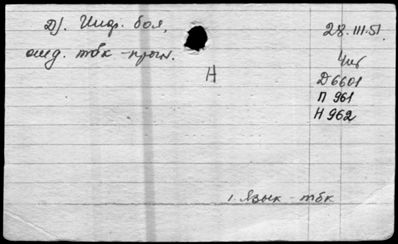 Д). Инф. боя,
28.III.51.
отд. тбк - прыч.
Н
Д 6601
П 961
Н 962
1. Язык - тбк